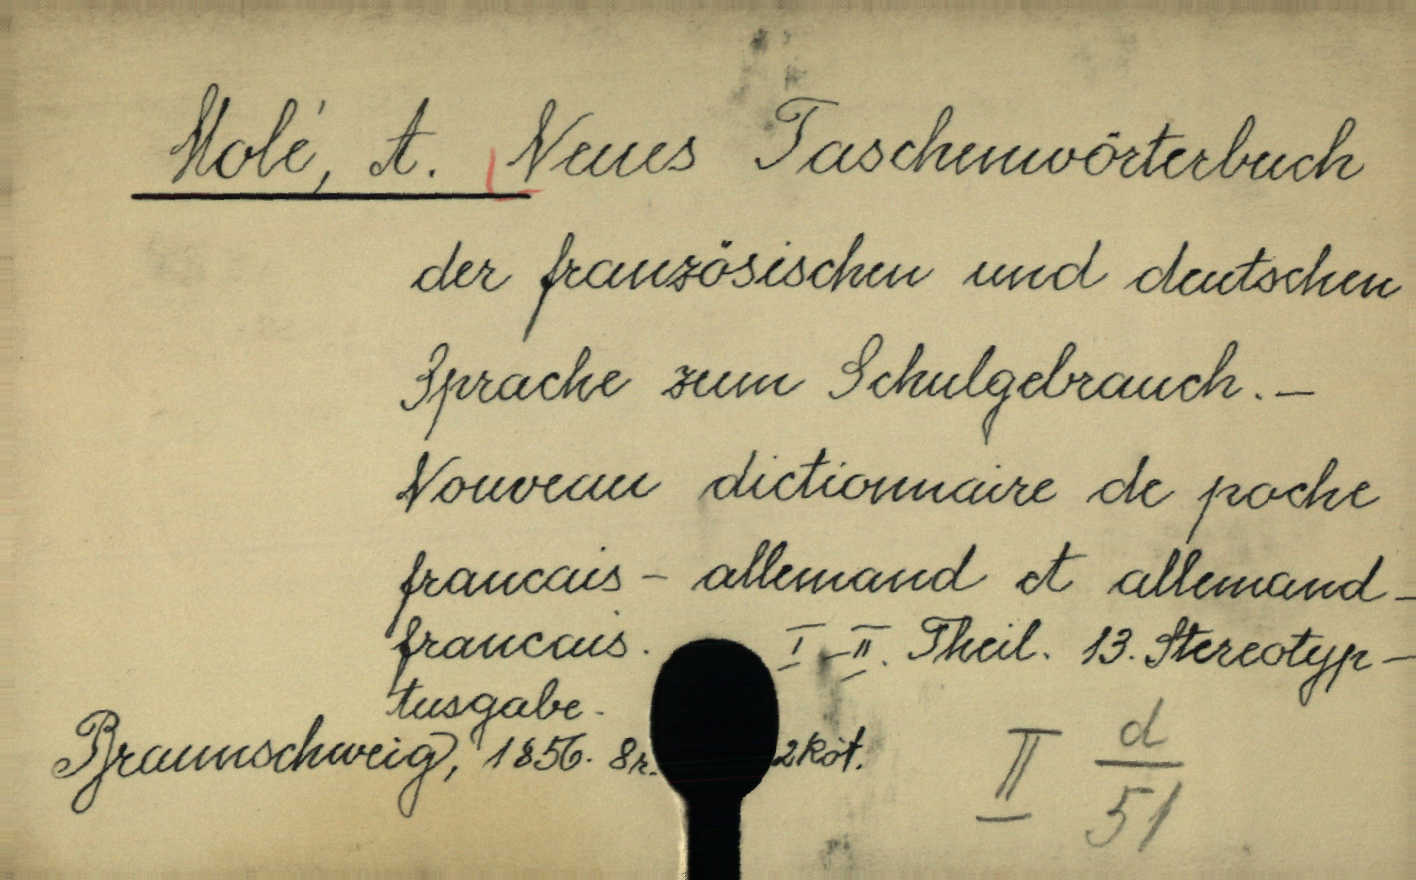 Molé, A. Neues Taschenwörterbuch
der französischen und deutschen
Sprache zum Schulgebrauch. –
Nouveau dictionnaire de poche
francais - allemand et allemand -
francais. I - II. Theil. 13. Stereotyp -
Ausgabe.
Braunschweig, 1856. 8r. 2 köt.
II d
51